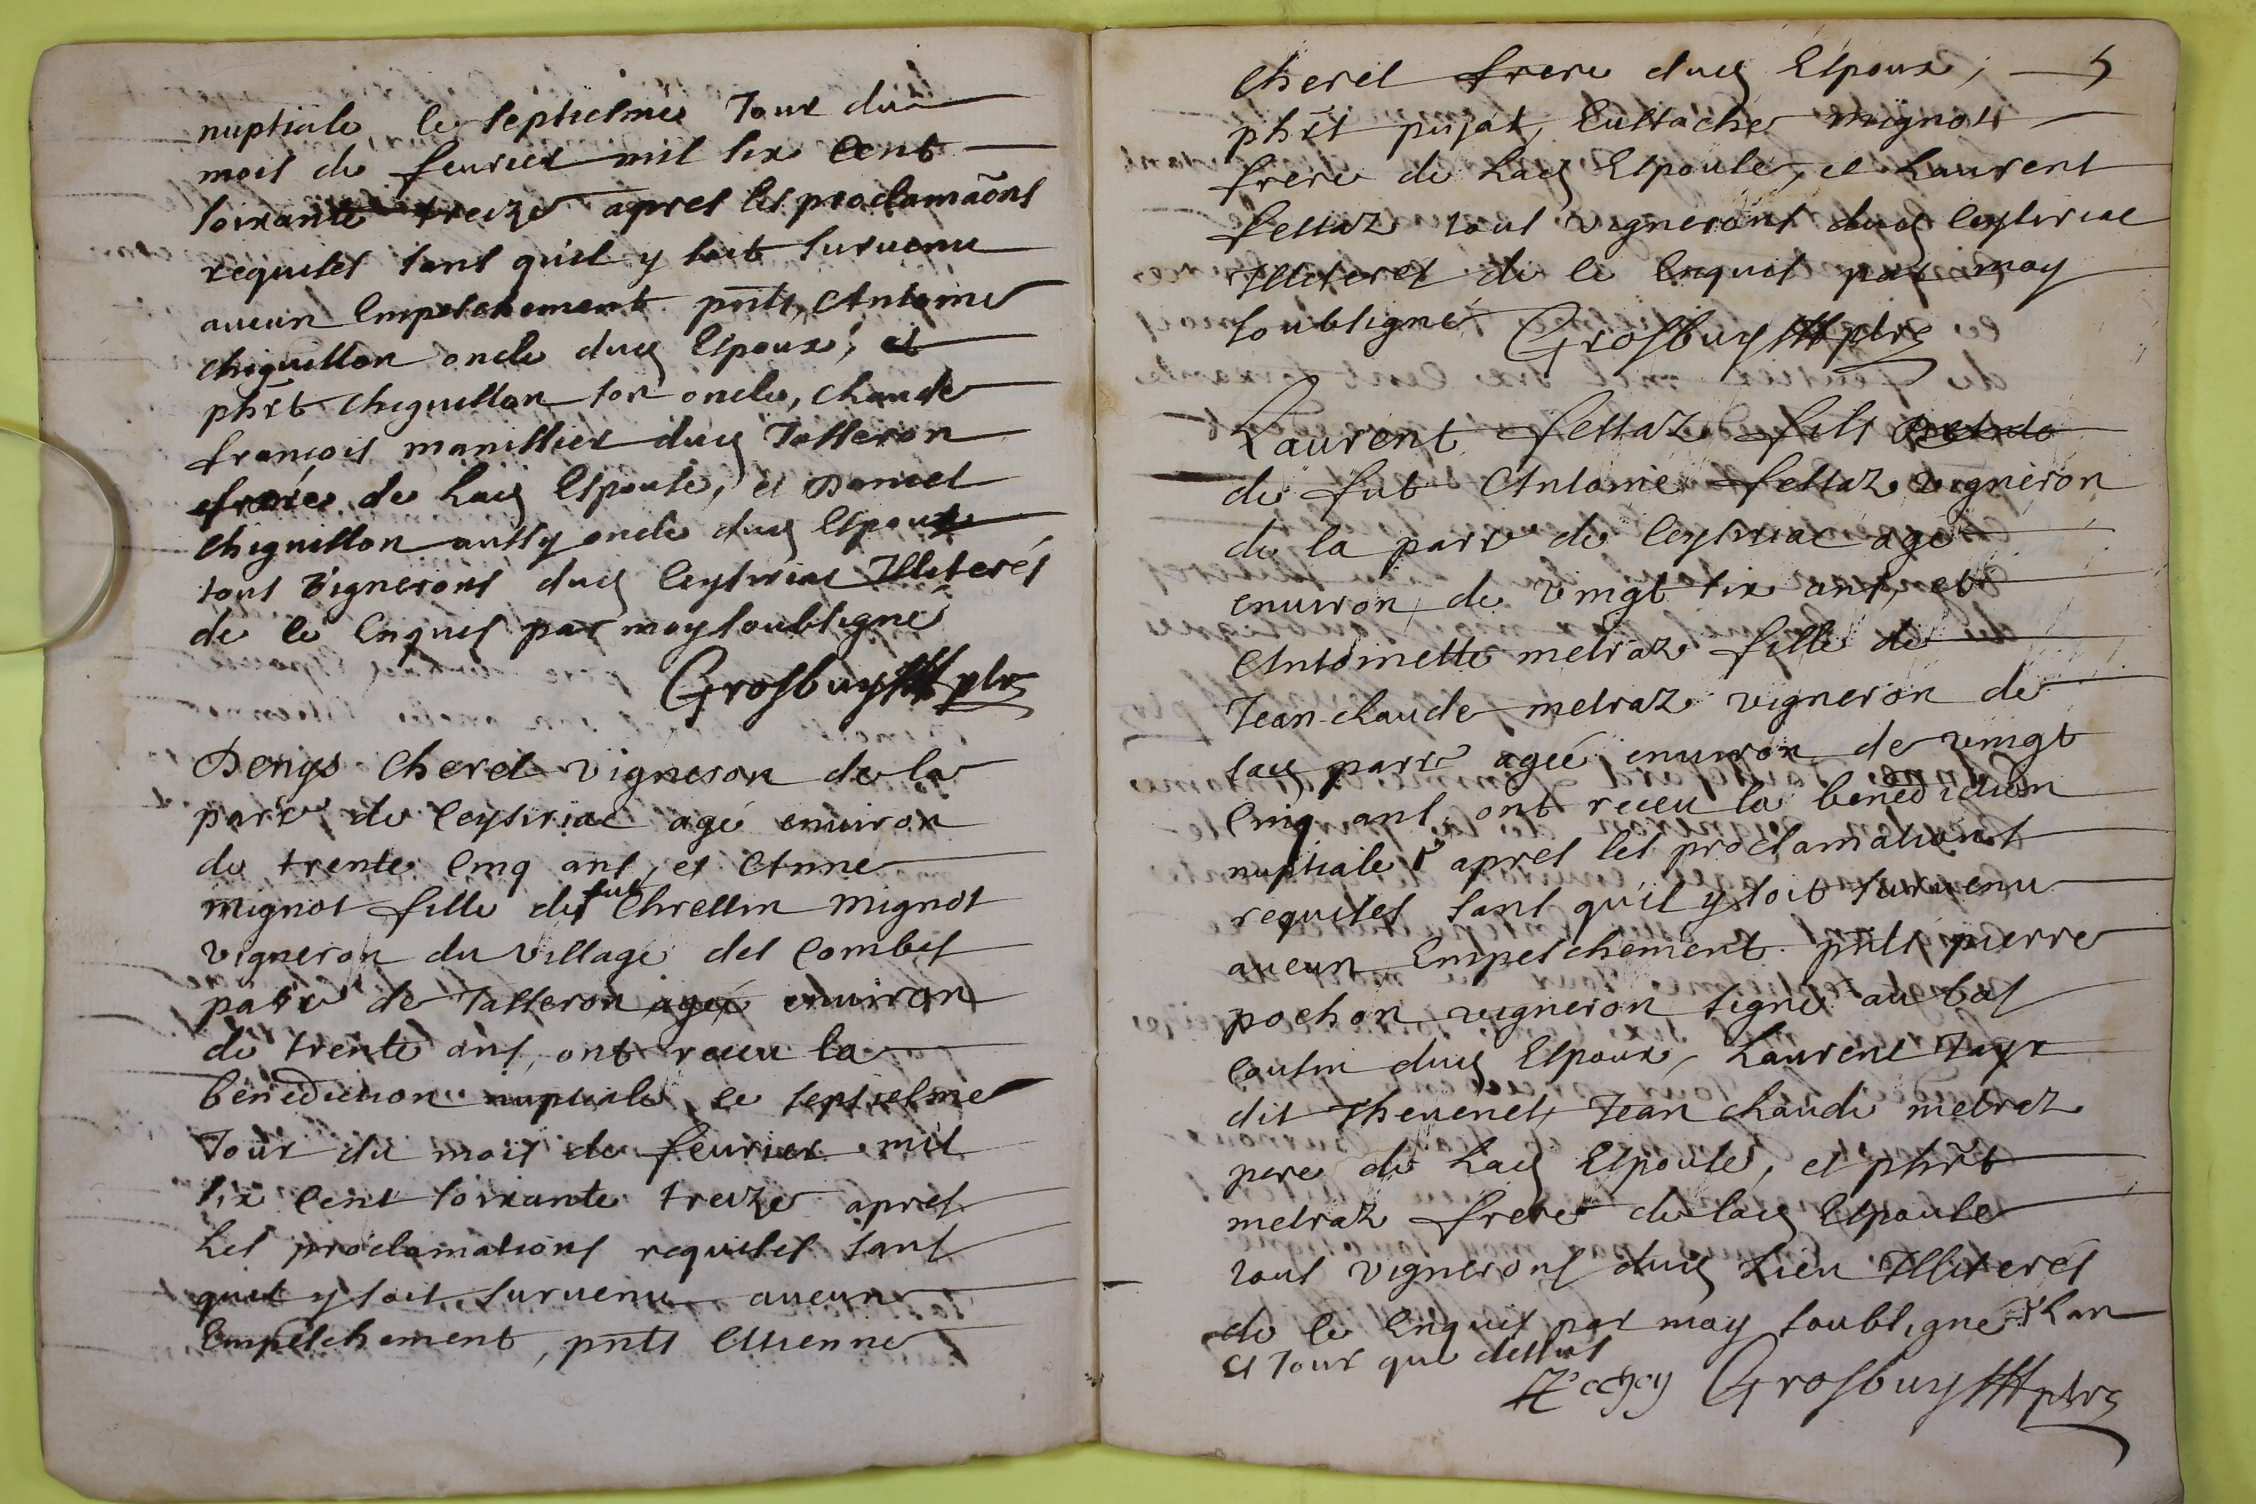 nuptiale, le septiesme Jour du
mois de feurier mil six Cent
soixante treize apres les proclamãons
requises sans quil y soit suruenu
aucun Empeschement pñts, Antoine
chiquillon oncle dud Espoux, et
phrt chiquillon son oncle, claude
françois manillier dud Tasseron
frere de Lad Espouse, et Daniel
chiquillon aussy oncle dud Espoux
tous Vignerons dud Ceysiriac Illiterés
de ce Enquis par moy soubsigné
Grosbuys ptre
Denys Cheret Vigneron de la
parr de Ceysiriac agé enuiron
de trente Cinq ans, et Anne
mignot fille de fut Chrestin mignot
vigneron du village des Combes
parr de Tasseron agée enuiron
de trente ans, ont receu la
benediction nuptiale, le septiesme
Jour du mois de feurier mil
six Cent soixante treize apres
Les proclamations requises sans
quil y soit suruenu aucun
Empeschement, pñts Estienne
Cheret frere dud Espoux, 5
phrt pujat, Eustache mignot
frere de Lad Espouse, et Laurent
fettaz tous vignerons dud Ceysiriac
Illiteres de ce Enquis par moy
soubsigné Grosbuys ptre
Laurent fettaz fils
de fut Antoine fettaz vigneron
de la parr de Ceysiriac agé
enuiron de vingt six ans, et
Antoinette metraz fille de
Jean claude metraz vigneron de
lad parr agée enuiron de vingt
Cinq ans, ont receu la benediction
nuptiale apres les proclamations
requises sans quil y soit suruenu
aucun Empeschement pñts pierre
pochon vigneron signé au bas
cousin dud Espoux, Laurent Jayr
dit Theuenet, Jean claude metraz
pere de Lad Espouse, et phrt
metraz frere de lad Espouse
tous vignerons dud Lieu Illiterés
de ce Enquis par moy soubsigné Lan
et Jour que dessus
Grosbuys ptre